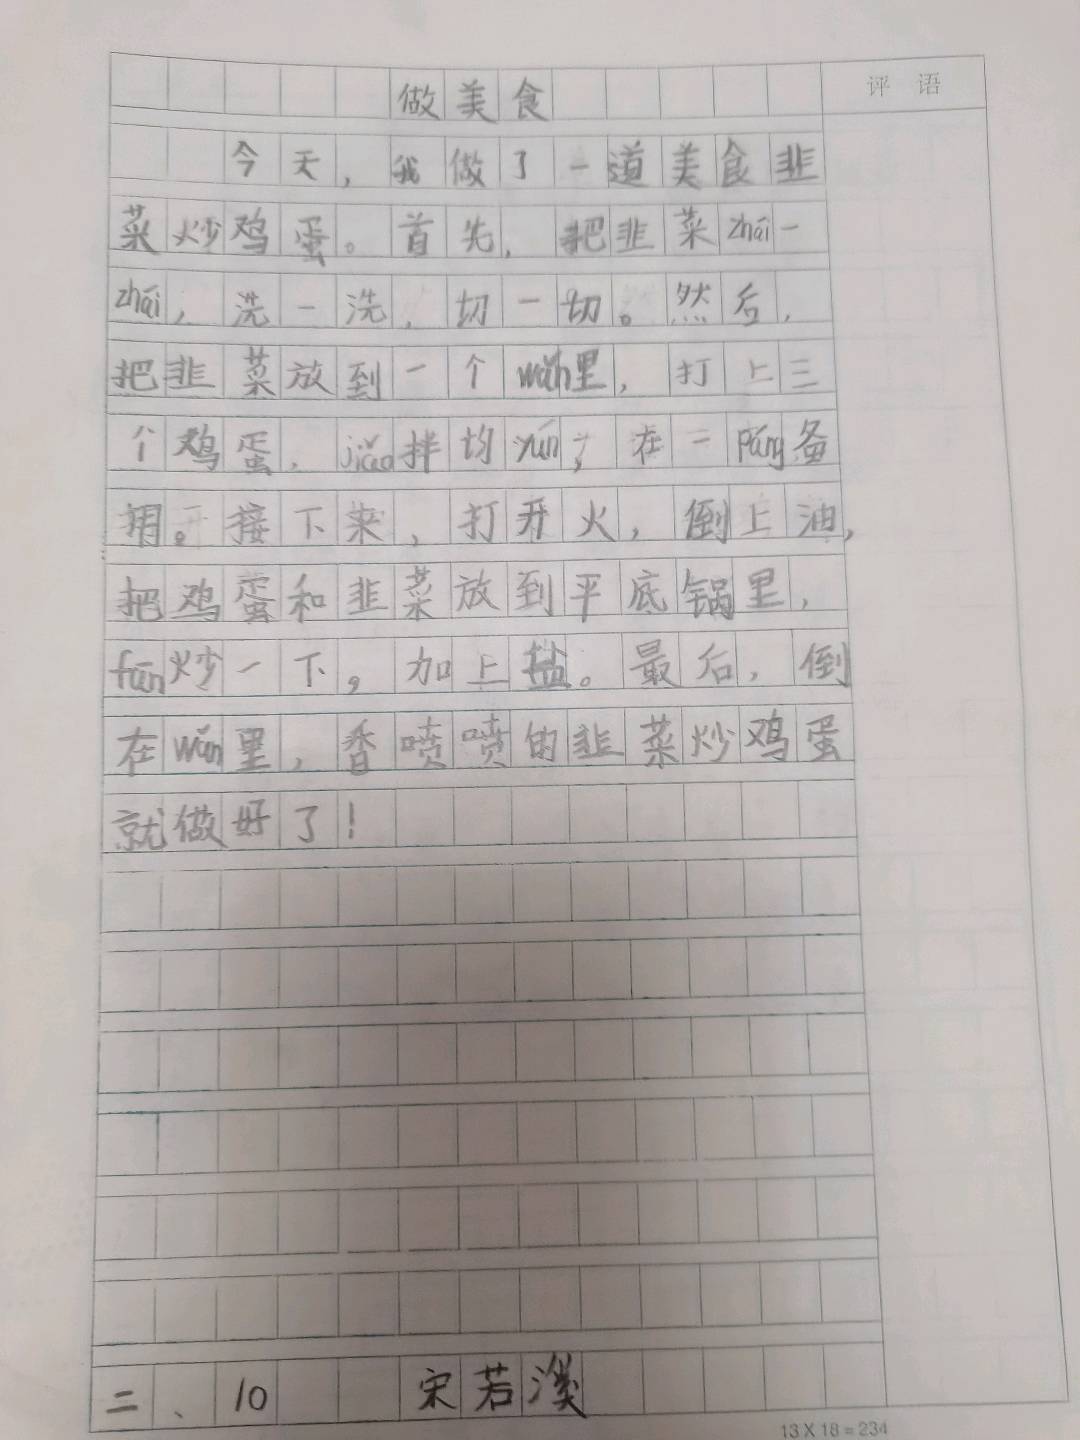 做美食
评语
今天，我做了一道美食韭
菜炒鸡蛋。首先，把韭菜zhāi一
zhāi，洗一洗，切一切。然后，
把韭菜放到一个wǎn里，打上三
个鸡蛋，jiǎo拌均yún，在一páng备
用。接下来，打开火，倒上油，
把鸡蛋和韭菜放到平底锅里，
fān炒一下，加上盐。最后，倒
在wǎn里，香喷喷的韭菜炒鸡蛋
就做好了！
二、10 宋若溪
13 X 18 = 234